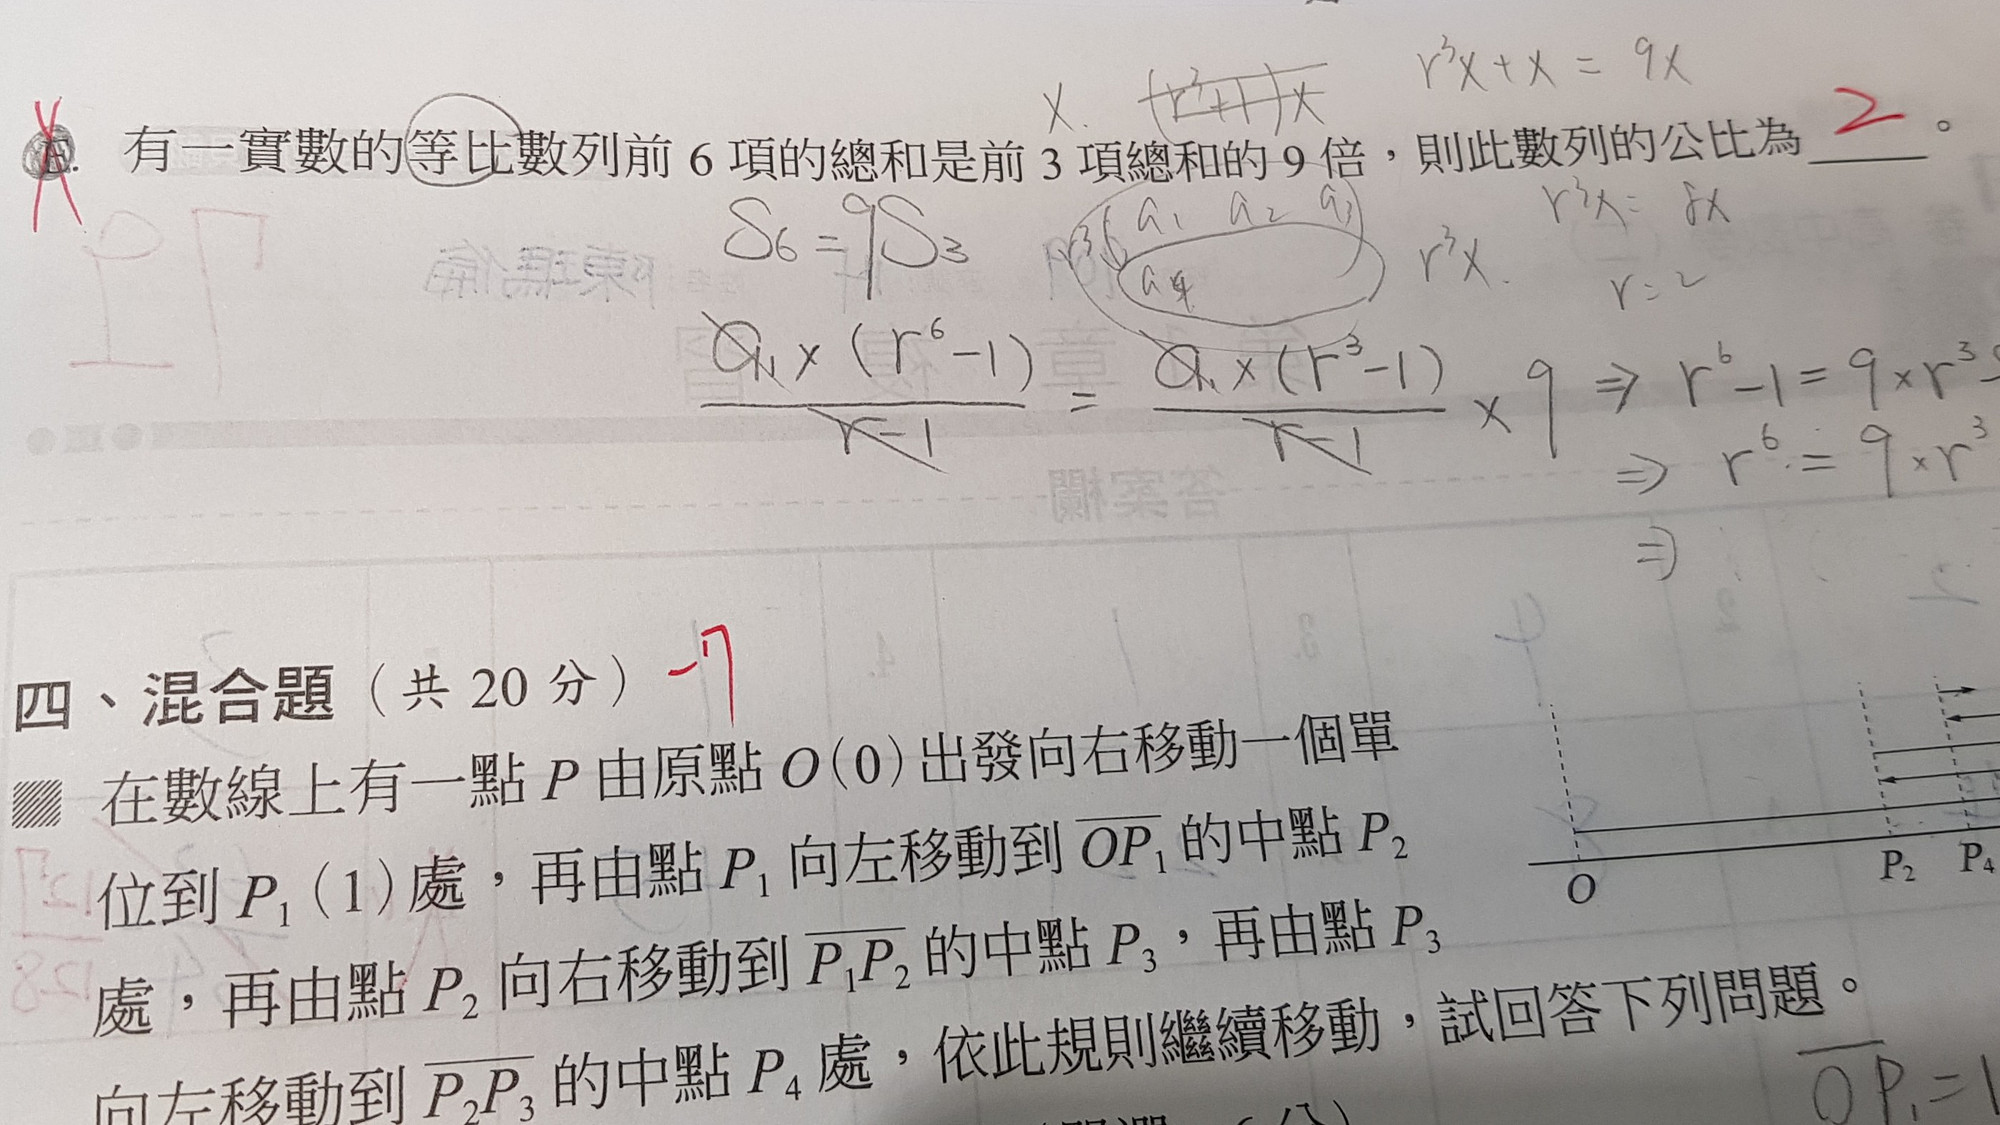 r³x + x = 9x
x. (r³+1)x
有一實數的等比數列前 6 項的總和是前 3 項總和的 9 倍，則此數列的公比為 2 。
S₆ = 9S₃
a₁ a₂ a₃
a₄
r³x.
r³x = 8x
r = 2
a₁ × (r⁶ − 1) / r − 1 = a₁ × (r³ − 1) / r − 1 × 9 ⇒ r⁶ − 1 = 9 × r³ −
⇒ r⁶ = 9 × r³
⇒
四、混合題（共 20 分） −7
在數線上有一點 P 由原點 O(0) 出發向右移動一個單
位到 P₁(1) 處，再由點 P₁ 向左移動到 OP₁ 的中點 P₂
處，再由點 P₂ 向右移動到 P₁P₂ 的中點 P₃，再由點 P₃
向左移動到 P₂P₃ 的中點 P₄ 處，依此規則繼續移動，試回答下列問題。
O P₂ P₄
OP₁ = 1